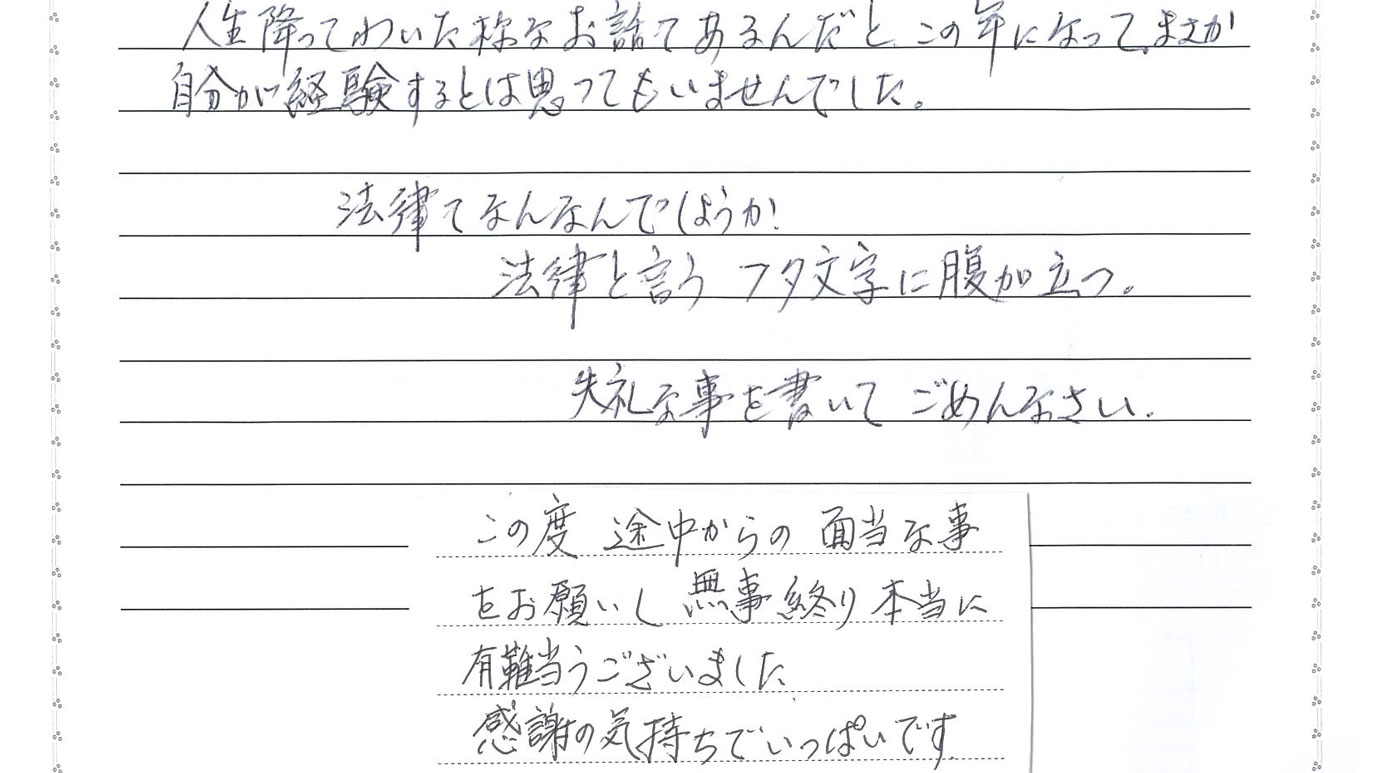 人生降ってわいた様なお話てあるんだと、この年になって、まさか
自分が経験するとは思ってもいませんでした。
法律てなんなんでしょうか!
法律と言う フタ文字に腹が立つ。
失礼な事を書いて ごめんなさい。
この度 途中からの 面当な事
をお願いし 無事終り 本当に
有難当うございました
感謝の気持ちでいっぱいです